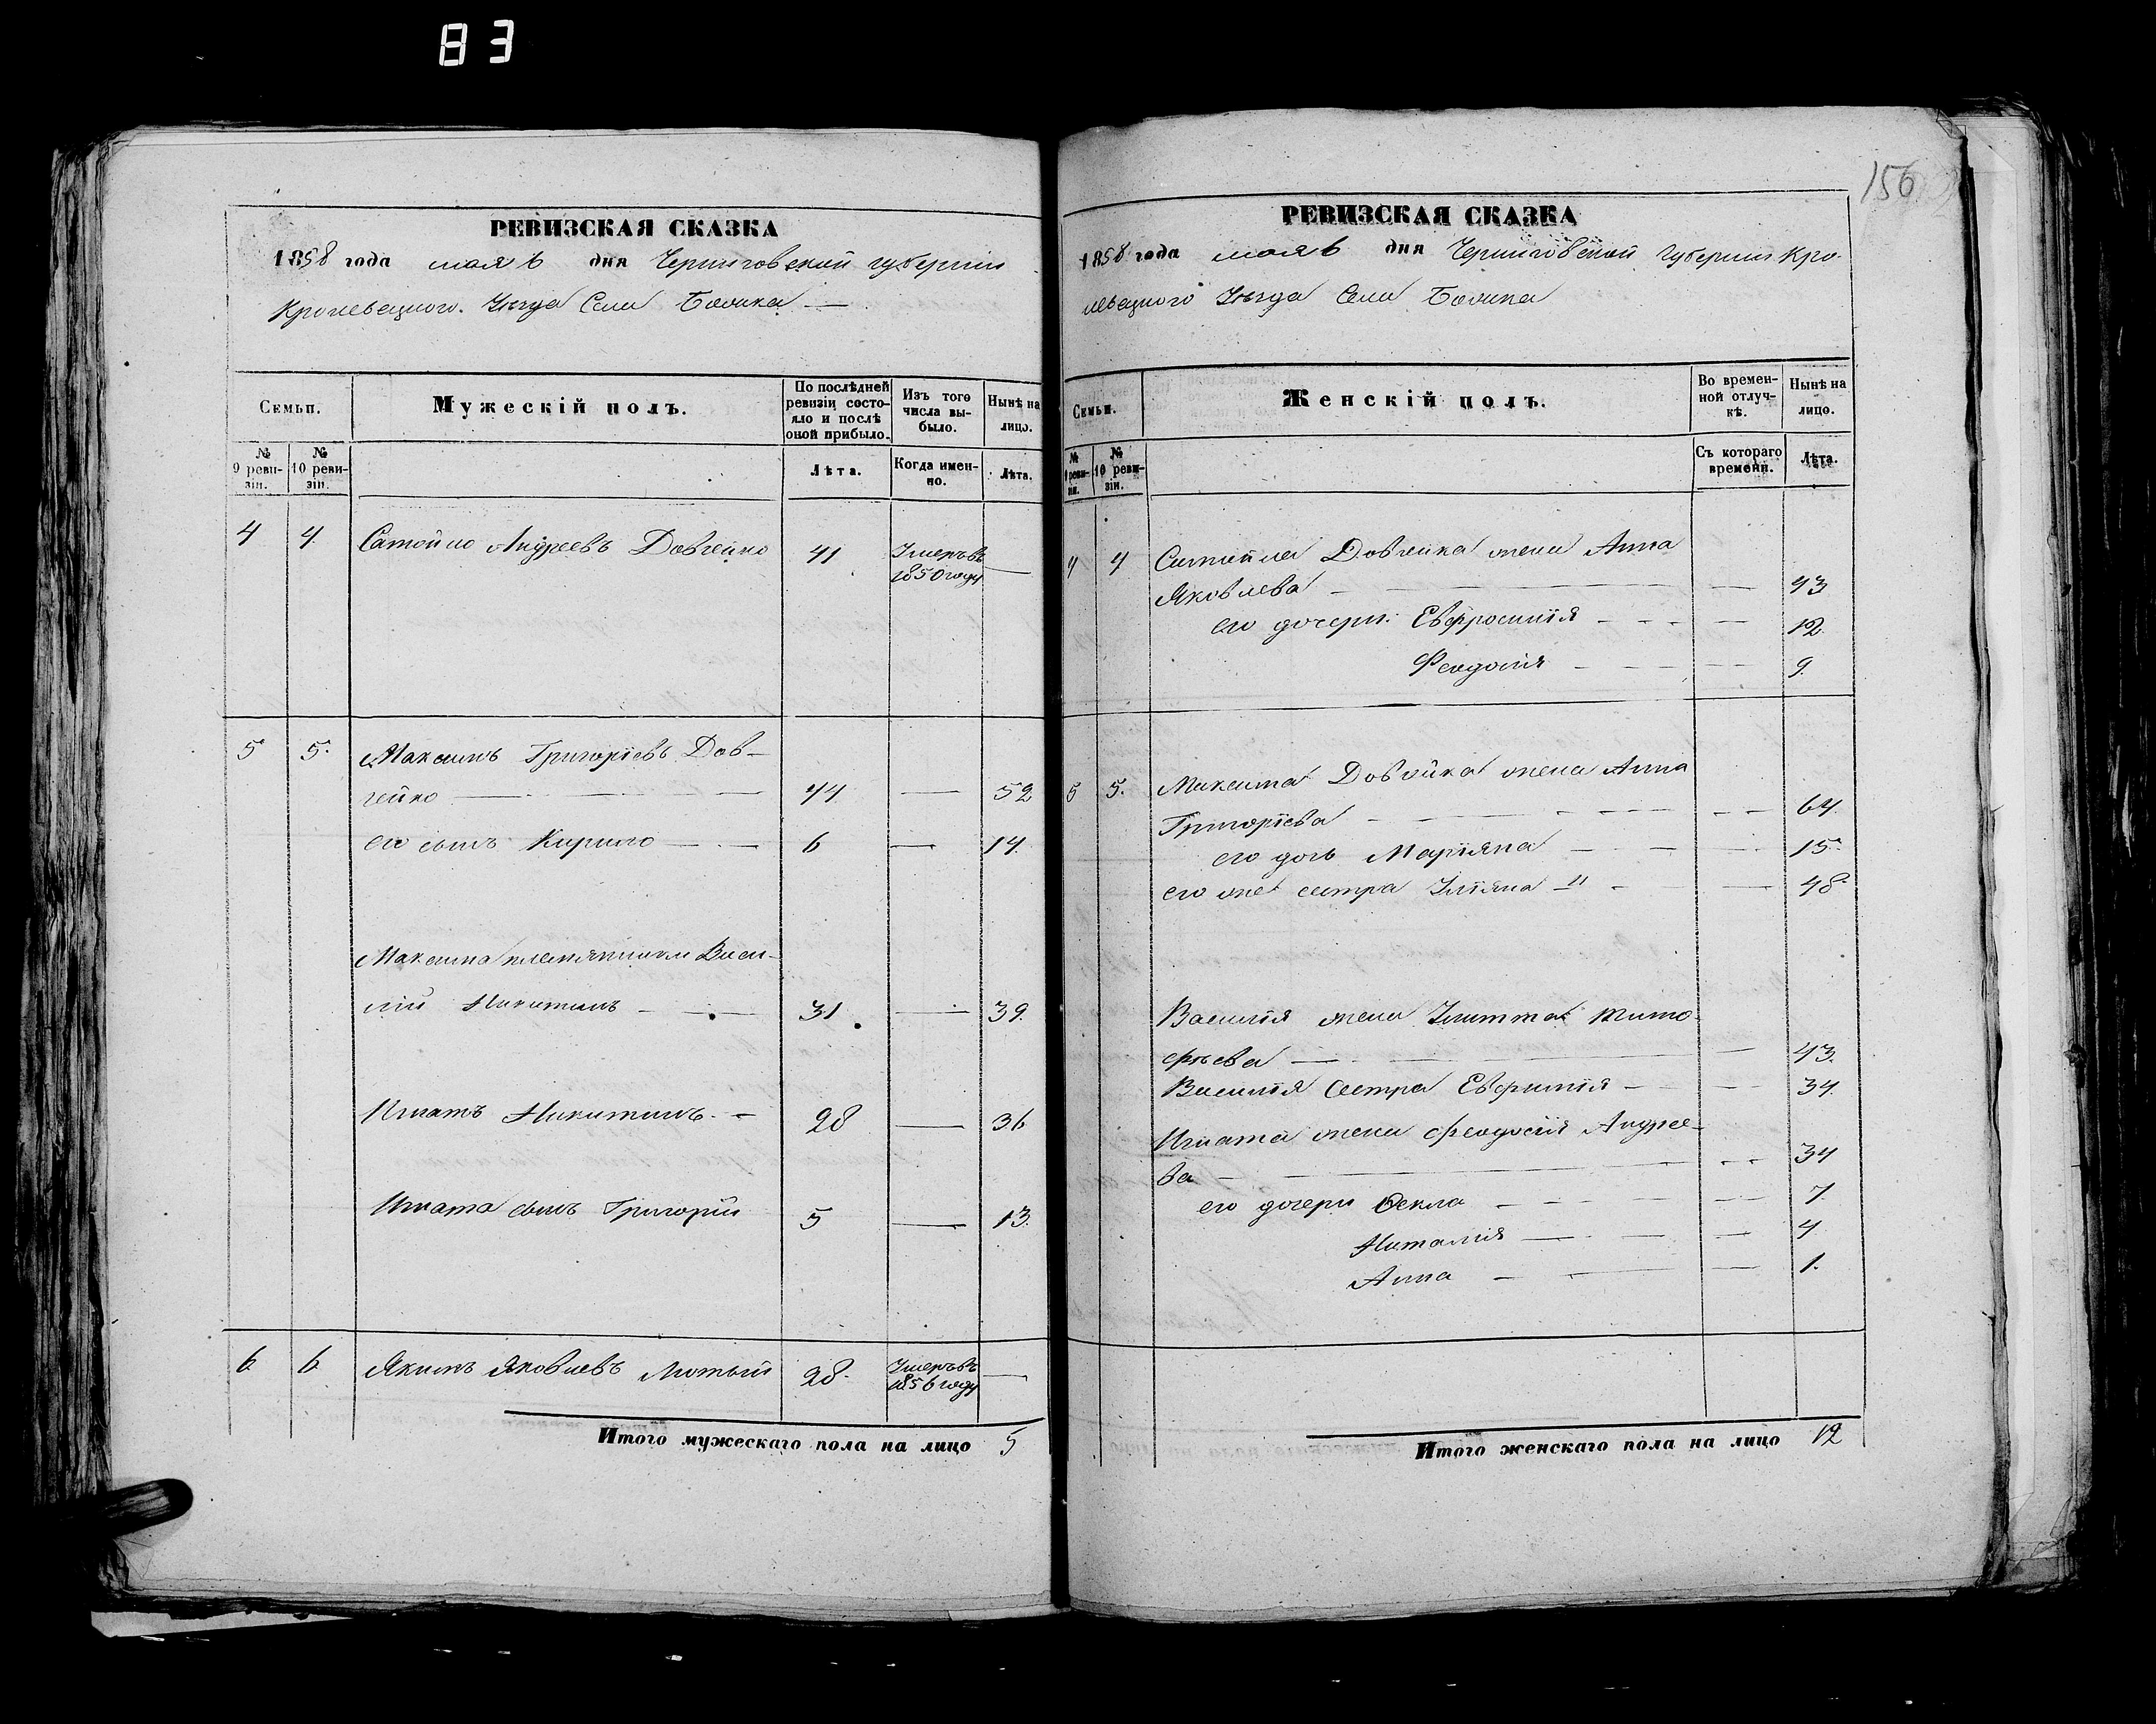 83
РЕВИЗСКАЯ СКАЗКА
1858 года мая 6 дня Черниговской губернии
Кролевецкого Уезда Села
Семьи.
Мужескій полъ.
По послѣдней ревизіи состояло и послѣ оной прибыло.
Изъ того числа выбыло.
Нынѣ на лицо.
№ 9 ревизіи.
№ 10 ревизіи.
Лѣта.
Когда именно.
Лѣта.
4 4 Самойло Андреевъ Довгейко 41 Умеръ въ 1850 году —
5 5. Максимъ Григоріевъ Дов-
гейко — 44 — 52
его сынъ Кирило — 6 — 14.
Максима племянники Васи-
лій Никитинъ — 31 — 39.
Игнатъ Никитинъ — 28 — 36
Игната сынъ Григорій 5 — 13.
6. 6. Якимъ Яковлевъ Лютый 28. Умеръ въ 1856 году —
Итого мужескаго пола на лицо 5
156
РЕВИЗСКАЯ СКАЗКА
1858 года мая 6 дня Черниговской Губернии Кро-
левецкого Уезда Села
Семьи.
Женскій полъ.
Во временной отлучкѣ.
Нынѣ на лицо.
№ 9 ревизіи.
№ 10 ревизіи.
Съ котораго времени.
Лѣта.
4 4 Самойла Довгейка жена Анна
Яковлева — — 43
его дочери: Евфросинія — — 12.
Феодосія — — 9.
5 5. Максима Довгейка жена Анна
Григоріева — — 64.
его дочь Маріяна — — 15.
его же сестра Уліяна — — 48.
Василія жена Улитта Тимо-
фѣева — — 43.
Василія сестра Евфимія — — 34.
Игната жена Феодосія Андрее-
ва — — 34
его дочери Ѳекла — — 7.
Наталія — — 4.
Анна — — 1.
Итого женскаго пола на лицо 12